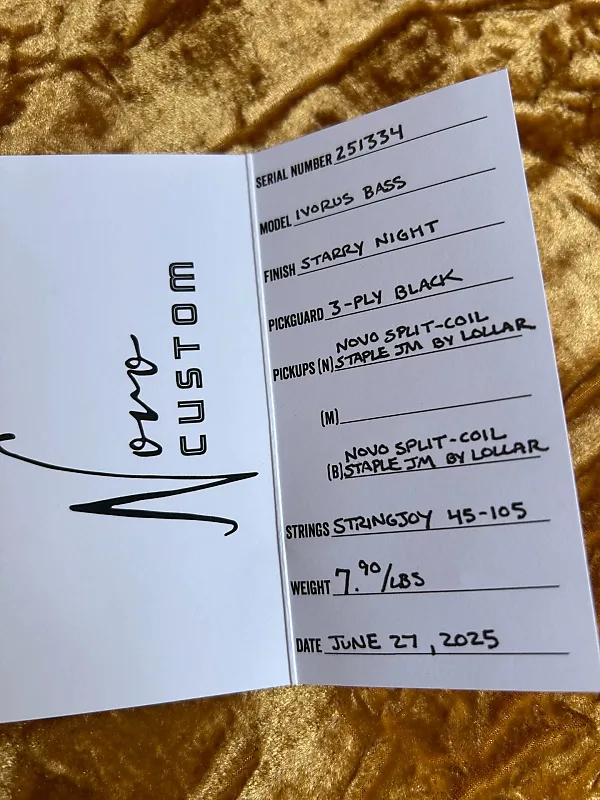 Novo
CUSTOM
SERIAL NUMBER 251334
MODEL IVORUS BASS
FINISH STARRY NIGHT
PICKGUARD 3-PLY BLACK
NOVO SPLIT-COIL
PICKUPS (N) STAPLE JM BY LOLLAR
(M)
NOVO SPLIT-COIL
(B) STAPLE JM BY LOLLAR
STRINGS STRINGJOY 45-105
WEIGHT 7.90/LBS
DATE JUNE 27, 2025